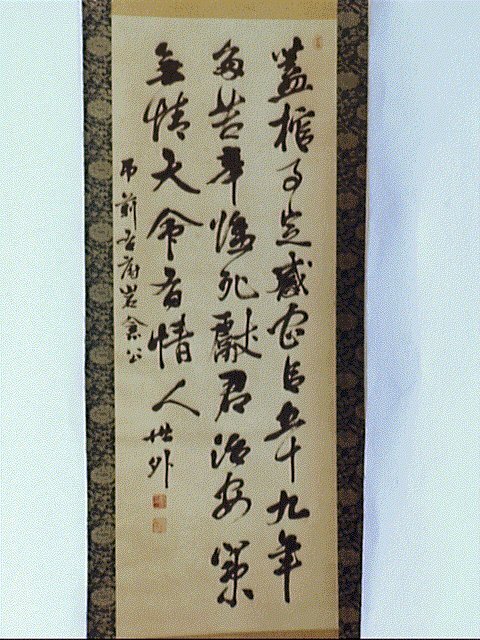 蓋棺事定感臣五十九年
多苦辛臨死獻君治安策
無情天命有情人 世外
弔前右府岩倉公